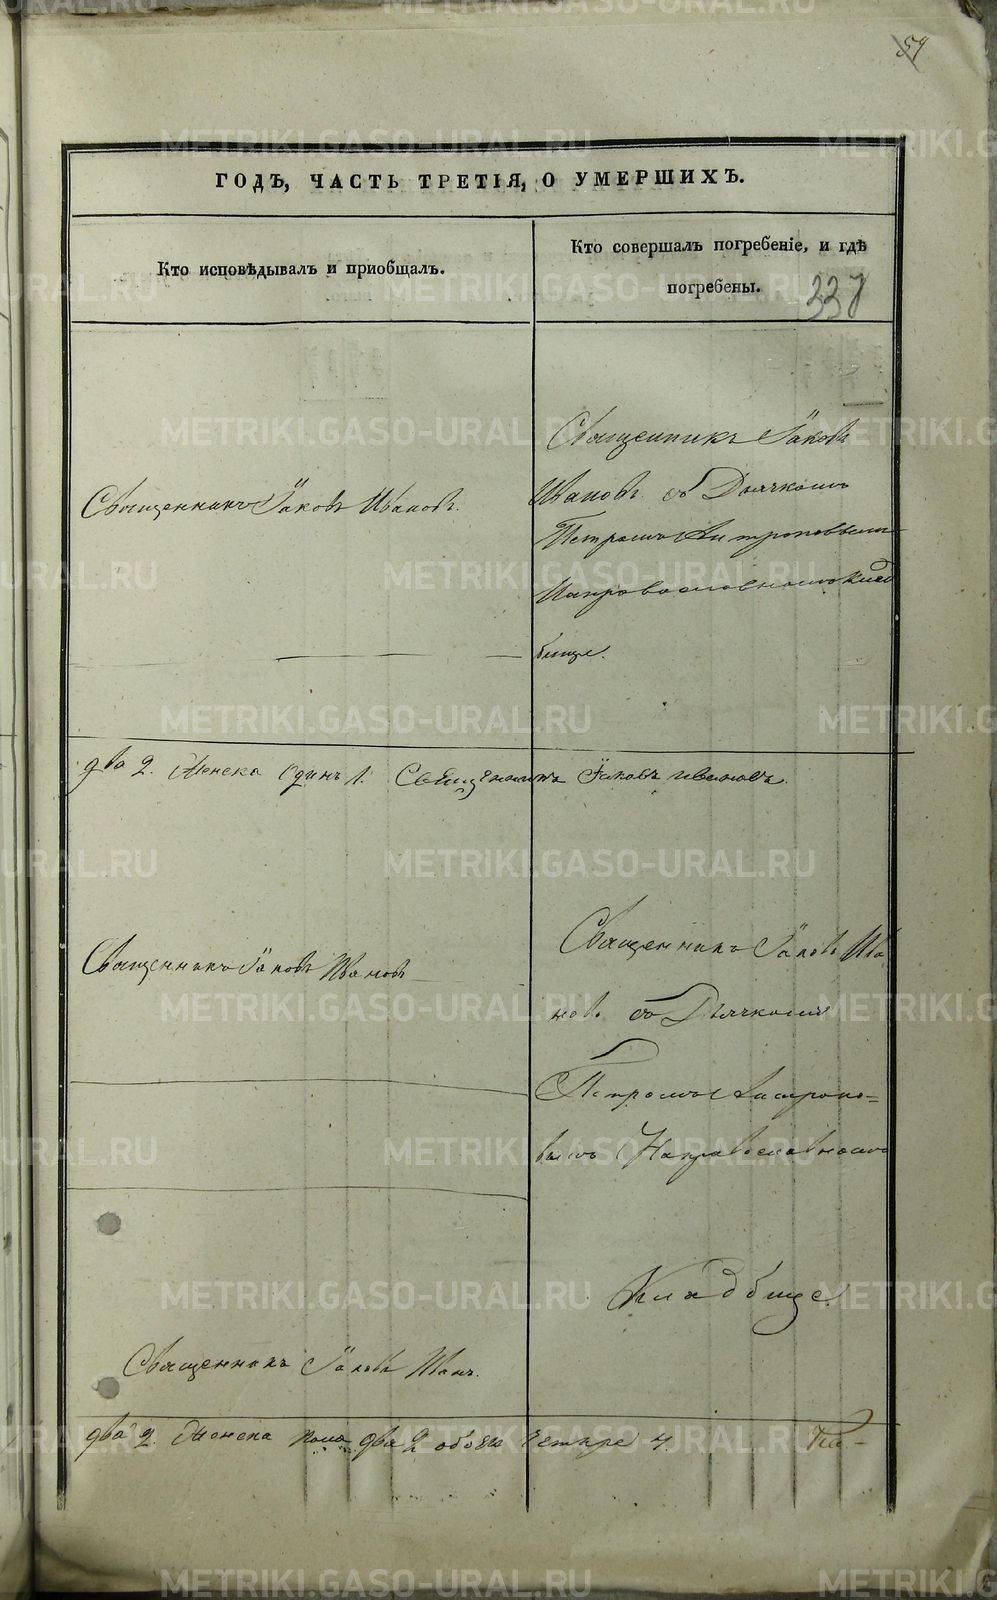 59
ГОДЪ, ЧАСТЬ ТРЕТІЯ, О УМЕРШИХЪ.
Кто исповѣдывалъ и пріобщалъ.
Кто совершалъ погребеніе, и гдѣ
погребены.
337
Священникъ Іаковъ Ивановъ.
Священникъ Іаковъ
Ивановъ съ Дьячкомъ
Петромъ Антроповымъ
На православномъ клад
бище.
два 2. Женска Одинъ 1. Священникъ Іаковъ Ивановъ.
Священникъ Іаковъ Ивановъ
Священникъ Іаковъ Ива
новъ съ Дьячкомъ
Петромъ Антропо=
вымъ На православномъ
Кладбище.
Священникъ Іаковъ Иван.
два 2. Женска пола два 2 обоего четыре 4.
METRIKI.GASO-URAL.RU